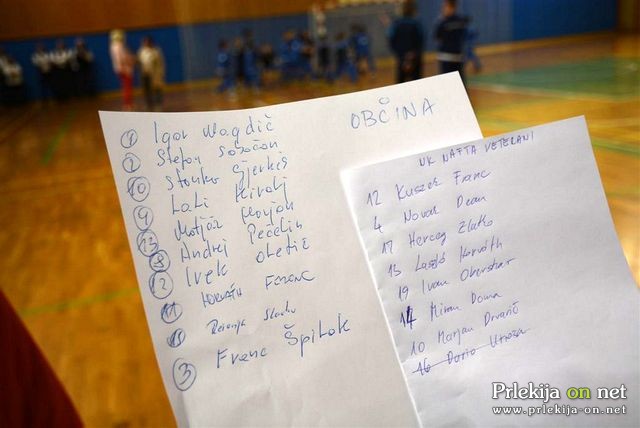 OBČINA
1 Igor Magdič
2 Stefan
10 Stanko
9 Laki Kiralj
13 Matjaž Marjan
8 Andrej Pečelin
2 Ivek
11 HORVÁTH FERENC
Slavko
3 Franc Špilak
NK NAFTA VETERANI
12 Kuszek Franc
4 Novak Dean
17 Herceg Zlatko
13 Laszló Horváth
19 Ivan Oberstar
14 Miran Doma
10 Marjan Drvarič
16 Dario
Prlekija on net
www.prlekija-on.net